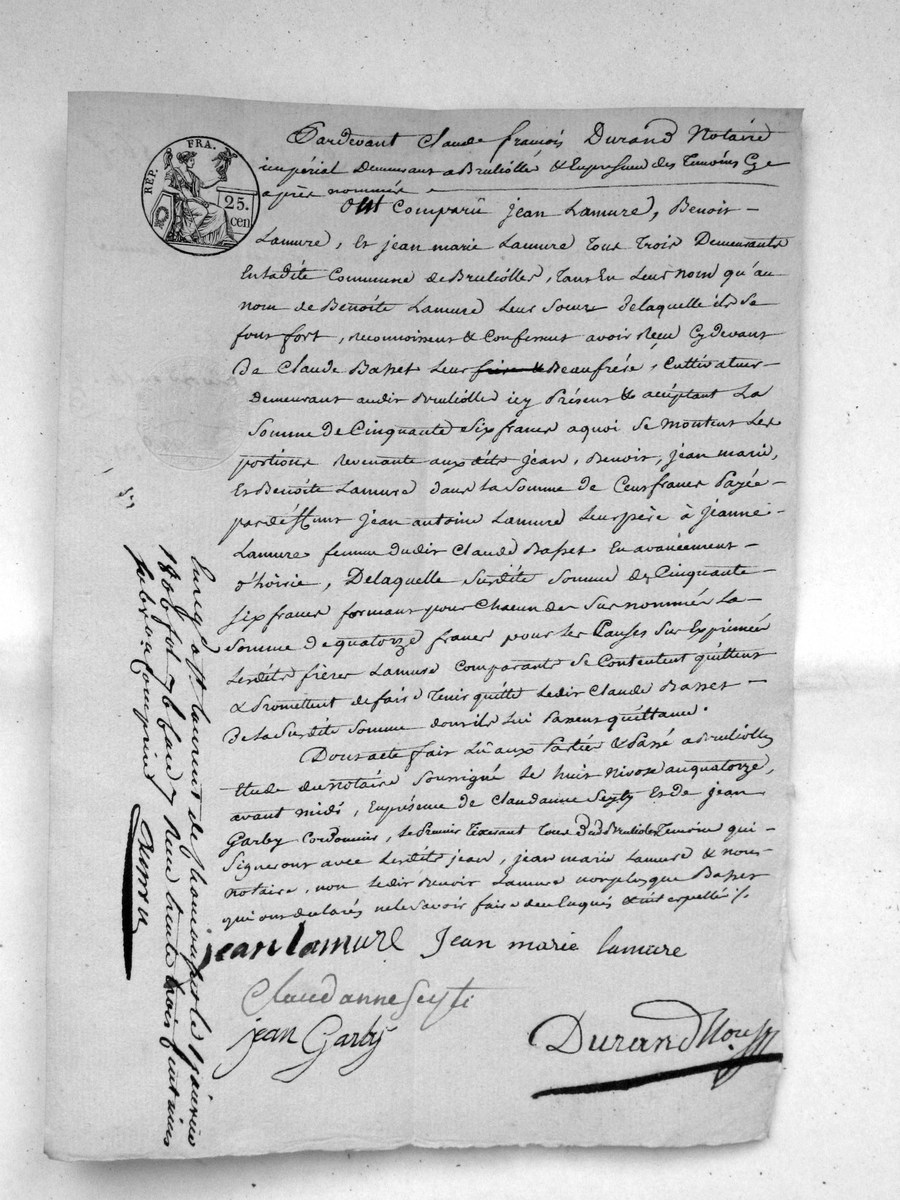 RÉP. FRA.
25.
cen
Pardevant Claude françois Durand Notaire
impérial Demeurant a Brulliolles & En presence des Temoins Cy
après nommés
Ont Comparü jean Lamure, Benoit
Lamure, Et jean marie Lamure Tous Trois Demeurants
En ladite Commune de Brulliolles, Tant En Leur nom qu'au
nom de Benoite Lamure Leur Soeur delaquelle ils Se
font fort, reconnoissent & Confessent avoir Reçu Cy devant
De Claude Basset Leur frere & Beaufrére, Cultivateur
demeurant audit Brulliolles icy Présent & acéptant La
Somme de Cinquante Six francs a quoi Se montent Les
portions Revenante aux dits jean, Benoit, jean marie,
Et Benoite Lamure dans La Somme de Cent francs Payée
par deffunt jean antoine Lamure Leur père à jeanne
Lamure femme dudit Claude Basset En avancement
d'hoirie, Delaquelle Susdite Somme de Cinquante
Six francs formant pour Chacun des Sus nommés La
Somme de quatorze francs pour Les Causes Sus Exprimées
Lesdits frères Lamure Comparants Se Contentent quittent
& Promettent de faire Tenir quitte Ledit Claude Basset
De La Susdite Somme dont ils Lui Passent quittance.
Dont acte fait Lû aux Parties & Passé a Brulliolles
Etude du notaire Soussigné Le huit Nivose an quatorze,
avant midi, En présence de Claudanne Seyty Et de jean
Garby Cordonnier, Le Premier Tixerant Tous Dud Brulioles Temoins qui
Signeront avec Lesdits jean, jean marie Lamure & nous
notaire, non Ledit Benoit Lamure non plus que Basset
qui ont déclarés ne le Savoir faire de ce Enquis & interpellé ./.
jean lamure Jean marie lamure
Claudanne Seyti
jean Garby
Durand Not.
Enreg. a St. laurent de Chamousset le 7 janvier
1806 fol. 76 Case 7 Reçu trente trois centimes
subv.on Comprise